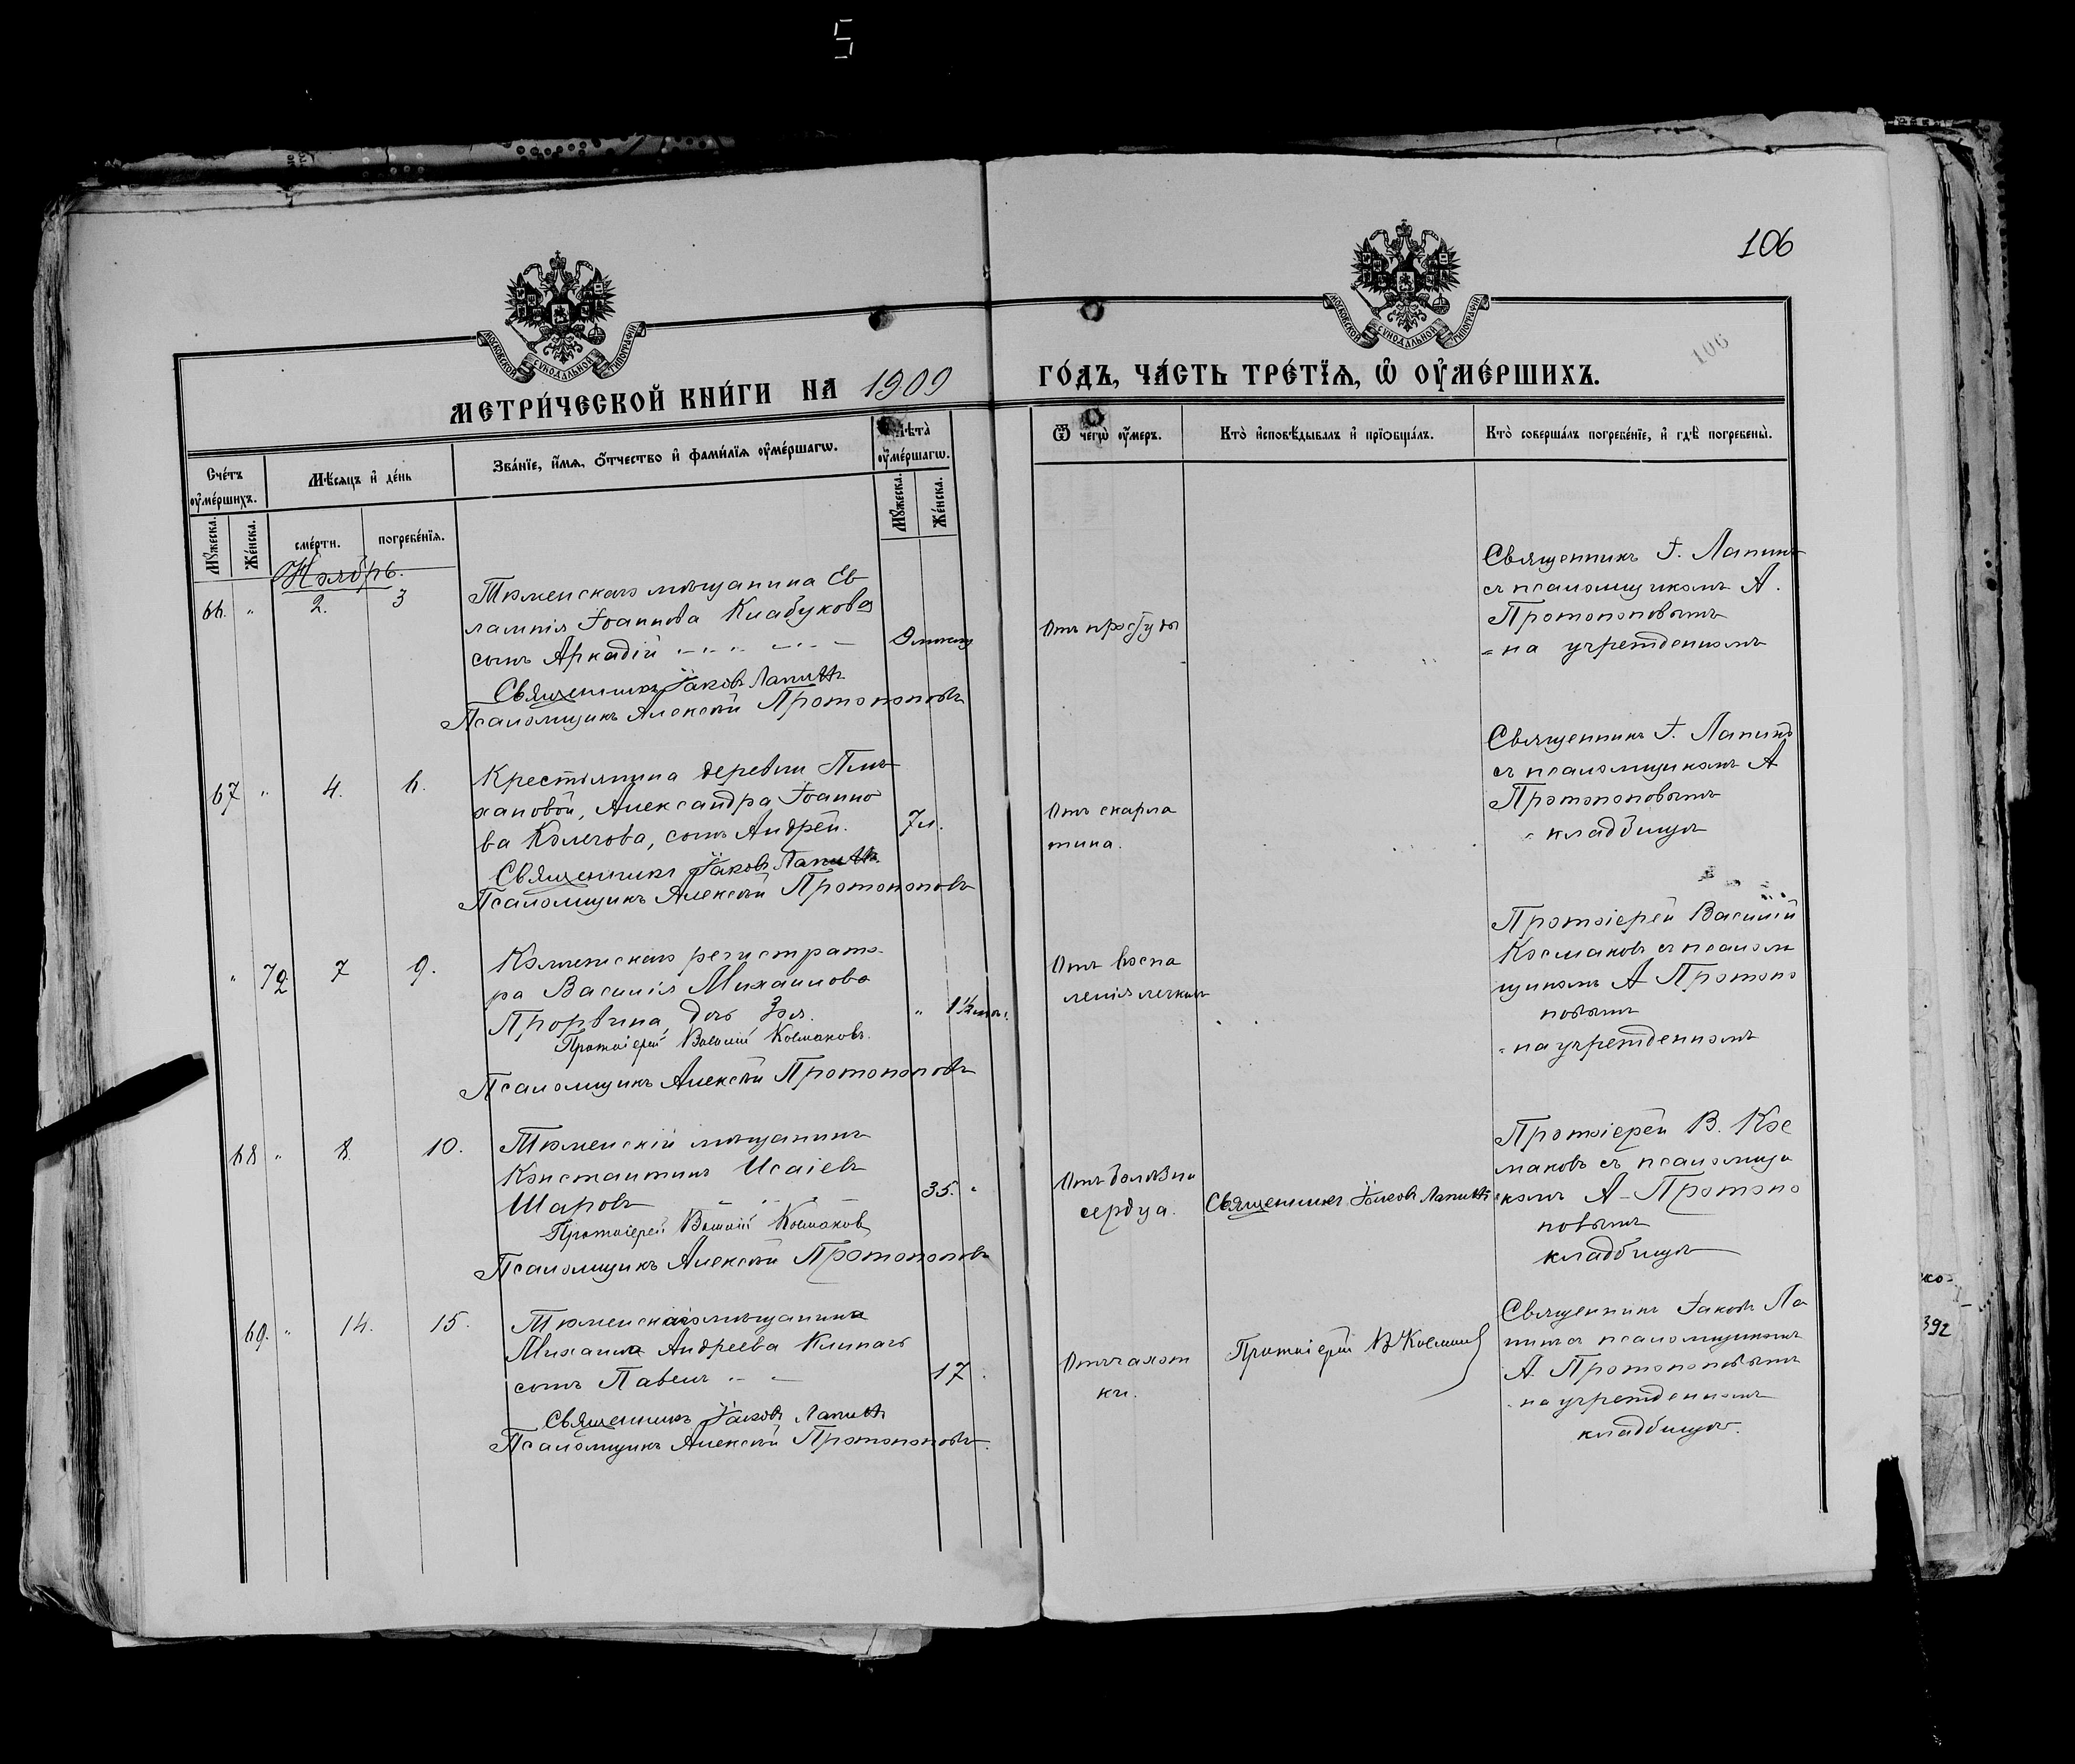 5
106
106
МОСКОВСКОЙ СУНОДАЛЬНОЙ ТИПОГРАФІИ
МОСКОВСКОЙ СУНОДАЛЬНОЙ ТИПОГРАФІИ
МЕТРИ́ЧЕСКОЙ КНИ́ГИ НА 1909
ГО́ДЪ, ЧА́СТЬ ТРЕ́ТІѦ, Ѡ҆ ОУ҆МЕ́РШИХЪ.
Сче́тъ оу҆ме́ршихъ.
Мꙋ́жеска.
Же́нска.
Мѣ́сѧцъ и҆ де́нь
сме́рти.
погребе́нїѧ.
Зва́нїе, и҆́мѧ, ѻ҆́тчество и҆ фами́лїѧ оу҆ме́ршагѡ.
Лѣ́та̀ оу҆ме́ршагѡ.
Мꙋ́жеска.
Же́нска.
Ѿ чегѡ̀ оу҆́меръ.
Кто̀ и҆сповѣ́дывалъ и҆ прїѡбща́лъ.
Кто̀ соверша́лъ погребе́нїе, и҆ гдѣ̀ погребены̀.
Ноябрь.
66. " 2. 3
Тюменскаго мѣщанина Ев
лампія Іоаннова Клабукова
сынъ Аркадій
Священникъ Іаковъ Лапинъ
Псаломщикъ Алексѣй Протопоповъ
Отъ простуды
Священникъ І. Лапинъ
съ псаломщикомъ А.
Протопоповымъ
на учрежденномъ
67 " 4. 6.
Крестьянина деревни
хановой, Александра Іоанно
ва Колегова, сынъ Андрей.
7 л.
Священникъ Іаковъ Лапинъ
Псаломщикъ Алексѣй Протопоповъ
Отъ скарла
тина.
Священникъ І. Лапинъ
съ псаломщикомъ А
Протопоповымъ
кладбищѣ
" 72 7 9.
Коллежскаго регистрато
ра Василія Михаилова
дочь Зоя.
" 1½
Протоіерей Василій Космаковъ.
Псаломщикъ Алексѣй Протопоповъ
Отъ воспа
ленія легкихъ
Протоіерей Василій
Космаковъ съ псалом
щикомъ А Протопо
повымъ
на учрежденномъ
68 " 8. 10.
Тюменскій мѣщанинъ
Константинъ Исаіевъ
Шаровъ
35. "
Протоіерей Василій Космаковъ
Псаломщикъ Алексѣй Протопоповъ
Отъ болѣзни
сердца.
Священникъ Іаковъ Лапинъ
Протоіерей В. Кос
маковъ съ псаломщи
комъ А Протопо
повымъ
кладбищѣ
69. " 14. 15.
Тюменскаго мѣщанина
Михаила Андреева
сынъ Павелъ
17.
Священникъ Іаковъ Лапинъ
Псаломщикъ Алексѣй Протопоповъ.
Отъ чахот
ки.
Протоіерей В. Космаковъ
Священникъ Іаковъ Ла
пинъ съ псаломщикомъ
А. Протопоповымъ
на учрежденномъ
кладбищѣ.
392